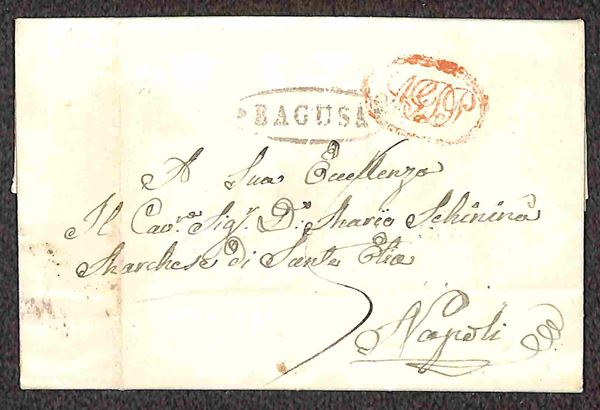 RAGUSA
A Sua Eccellenza
Il Cav.re Sig.r D.n Mario Schininà
Marchese di Santa Elia
5
Napoli